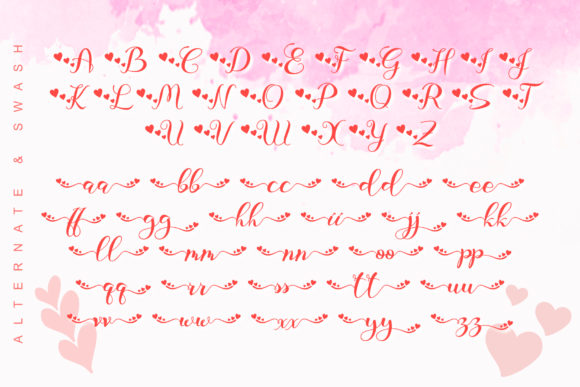 ALTERNATE & SWASH
A B C D E F G H I J
K L M N O P Q R S T
U V W X Y Z
aa bb cc dd ee
ff gg hh ii jj kk
ll mm nn oo pp
qq rr ss tt uu
vv ww xx yy zz